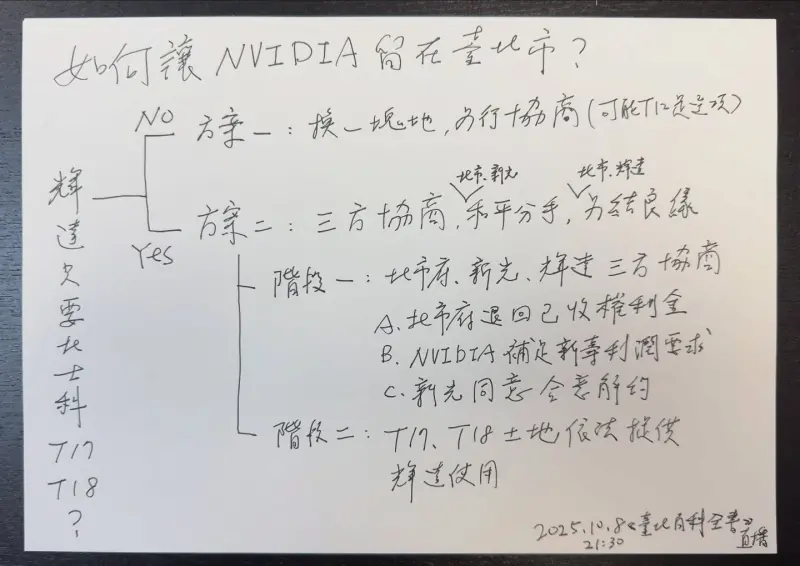 如何讓 NVIDIA 留在臺北市?
NO
方案一:換一塊地,另行協商(可能T12是選項)
北市、新光
北市、輝達
方案二:三方協商,和平分手,另結良緣
Yes
輝達只要北士科T17 T18?
階段一:北市府、新光、輝達三方協商
A.北市府退回已收權利金
B.NVIDIA補足新壽利潤要求
C.新光同意合意解約
階段二:T17、T18土地依法提供
輝達使用
2025.10.8《臺北百科全書》
21:30
直播